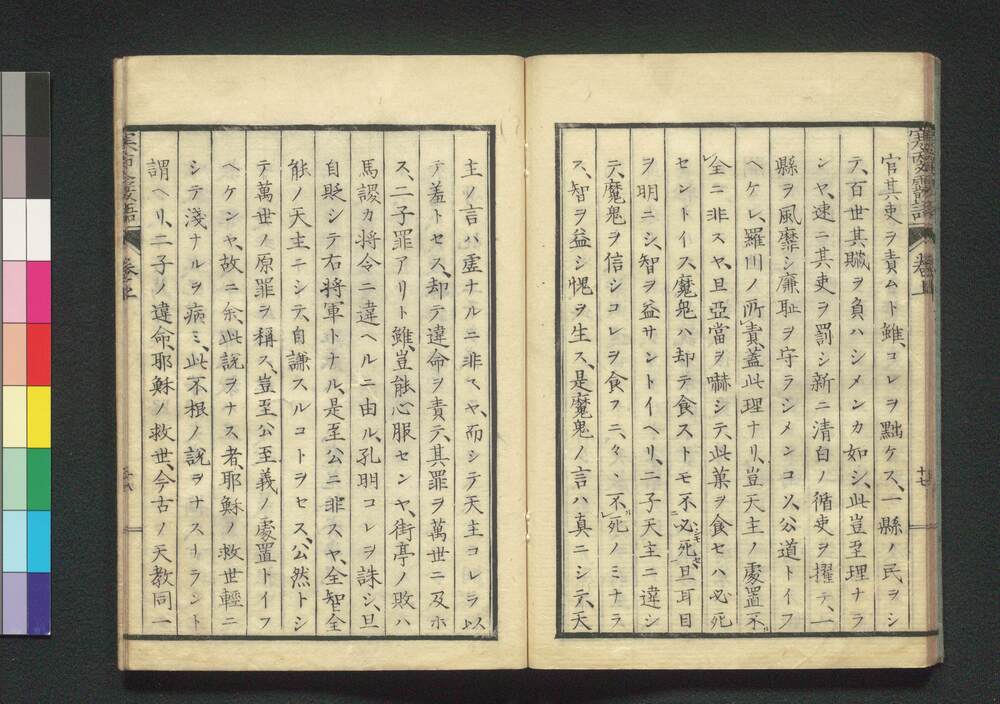 官其吏ヲ責ムト雖、コレヲ黜ケス、一縣ノ民ヲシ
テ、百世其贓ヲ負ハシメンカ如シ、此豈至理ナラ
ンヤ、速ニ其吏ヲ罰シ新ニ清白ノ循吏ヲ擢テ、一
縣ヲ風靡シ廉耻ヲ守ラシメンコソ、公道トイフ
ヘケレ、羅川ノ所責、蓋此理ナリ、豈天主ノ處置不
全ニ非スヤ、且亞當ヲ嚇シテ、此菓ヲ食セハ必死
セントイス、魔鬼ハ却テ食ストモ不必死、且耳目
ヲ明ニシ、智ヲ益サントイヘリ、二子天主ニ違シ
テ、魔鬼ヲ信シコレヲ食フニ、々、不死ノミナラ
ス、智ヲ益シ愧ヲ生ス、是魔鬼ノ言ハ真ニシテ、天
十七
主ノ言ハ虚ナルニ非スヤ、而シテ天主コレヲ以
テ羞トセス、却テ違命ヲ責テ、其罪ヲ萬世ニ及ホ
ス、二子罪アリト雖、豈能心服センヤ、街亭ノ敗ハ
馬謖カ将令ニ違ヘルニ由ル、孔明コレヲ誅シ、且
自貶シテ右将軍トナル、是至公ニ非スヤ、全智全
能ノ天主ニシテ、自謙スルコトヲセス、公然トシ
テ萬世ノ原罪ヲ稱ス、豈至公至義ノ處置トイフ
ヘケンヤ、故ニ余、此説ヲナス者、耶穌ノ救世輕ニ
シテ淺ナルヲ病ミ、此不根ノ説ヲナスーラント
謂ヘリ、二子ノ違命、耶穌ノ救世、今古ノ天教同一